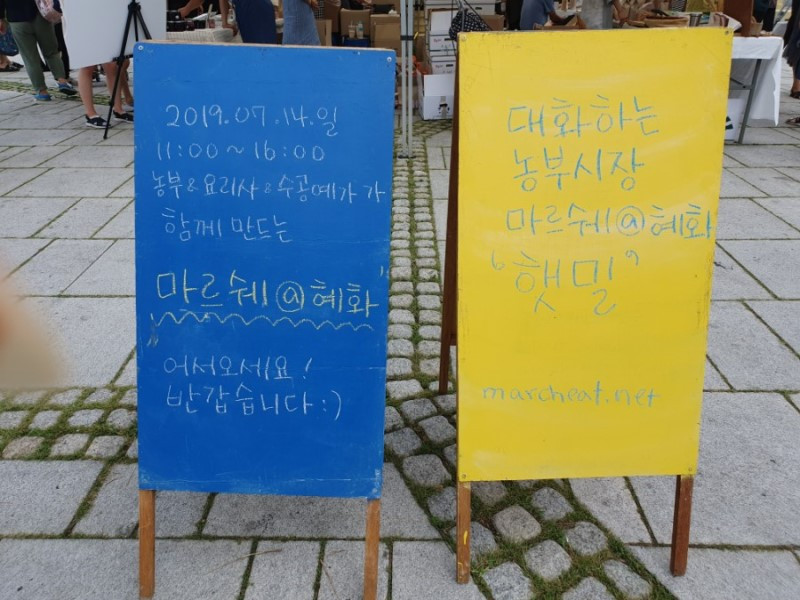 2019.07.14.일
11:00~16:00
농부&요리사&수공예가 가
함께 만드는
마르쉐@혜화
어서오세요!
반갑습니다:)
대화하는
농부시장
마르쉐@혜화
'햇밀'
marcheat.net